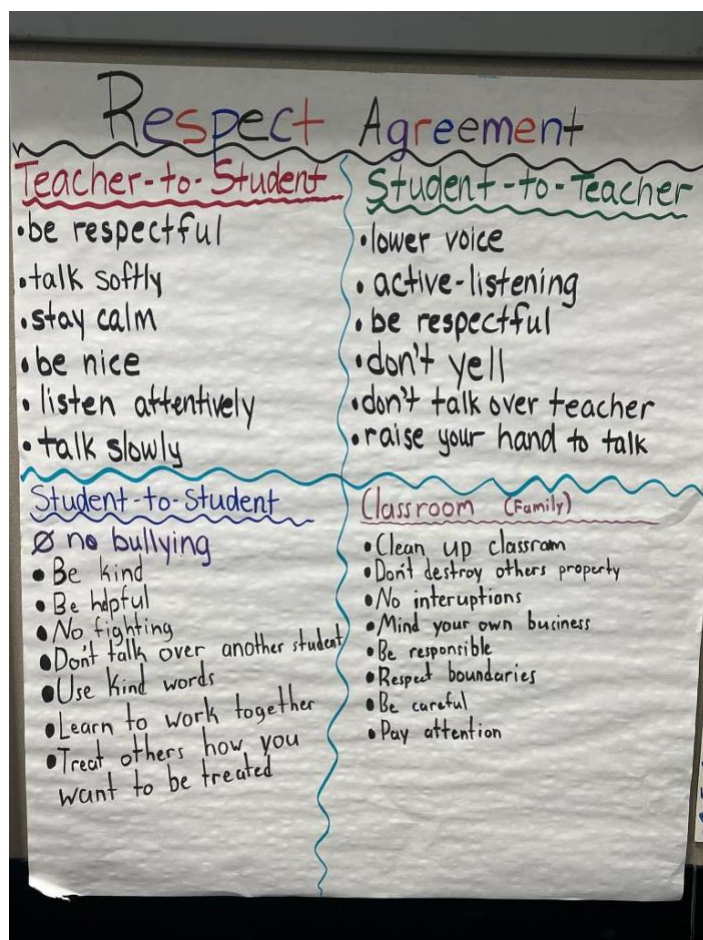 Respect Agreement
Teacher-to-Student
•be respectful
•talk softly
•stay calm
•be nice
•listen attentively
•talk slowly
Student-to-Teacher
•lower voice
•active-listening
•be respectful
•don't yell
•don't talk over teacher
•raise your hand to talk
Student-to-Student
Ø no bullying
•Be kind
•Be helpful
•No fighting
•Don't talk over another student
•Use kind words
•Learn to work together
•Treat others how you
want to be treated
Classroom (Family)
•Clean up classroom
•Don't destroy others property
•No interuptions
•Mind your own business
•Be responsible
•Respect boundaries
•Be careful
•Pay attention